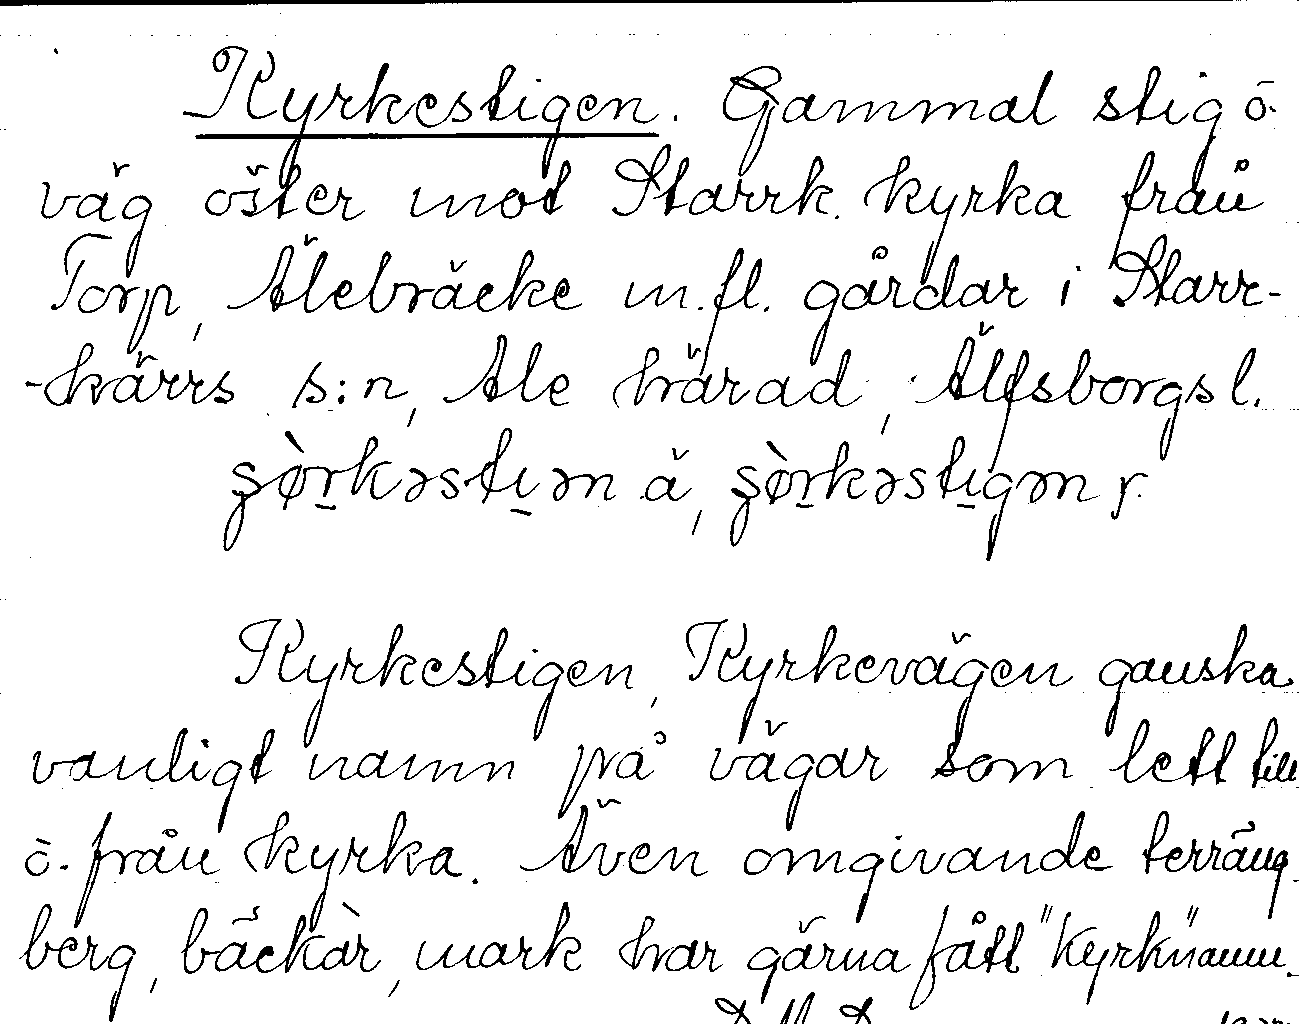 Kyrkestigen. Gammal stig o.
väg öster mot Starrk. kyrka från
Torp, Älebräcke m.fl. gårdar i Starr-
-kärrs s:n, Ale härad, Älfsborgs l.
Kyrkestigen, Kyrkevägen ganska
vanligt namn på vägar som lett till
o. från kyrka. Även omgivande terräng
berg, bäckar, mark har gärna fått "Kyrk"namn.